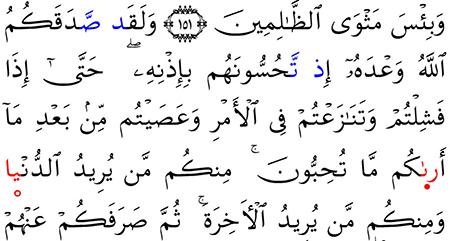 وَبِئْسَ مَثْوَى ٱلظَّٰلِمِينَ ۝١٥١ وَلَقَد صَّدَقَكُمُ
ٱللَّهُ وَعْدَهُۥٓ إِذ تَّحُسُّونَهُم بِإِذْنِهِۦ ۖ حَتَّىٰٓ إِذَا
فَشِلْتُمْ وَتَنَٰزَعْتُمْ فِى ٱلْأَمْرِ وَعَصَيْتُم مِّنۢ بَعْدِ مَآ
أَرىٰكُم مَّا تُحِبُّونَ ۚ مِنكُم مَّن يُرِيدُ ٱلدُّنْيا
وَمِنكُم مَّن يُرِيدُ ٱلْأَخِرَةَ ۚ ثُمَّ صَرَفَكُمْ عَنْهُمْ